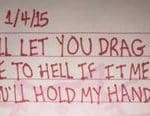 1/4/15
LL LET YOU DRAG
E TO HELL IF IT ME
U'LL HOLD MY HAND